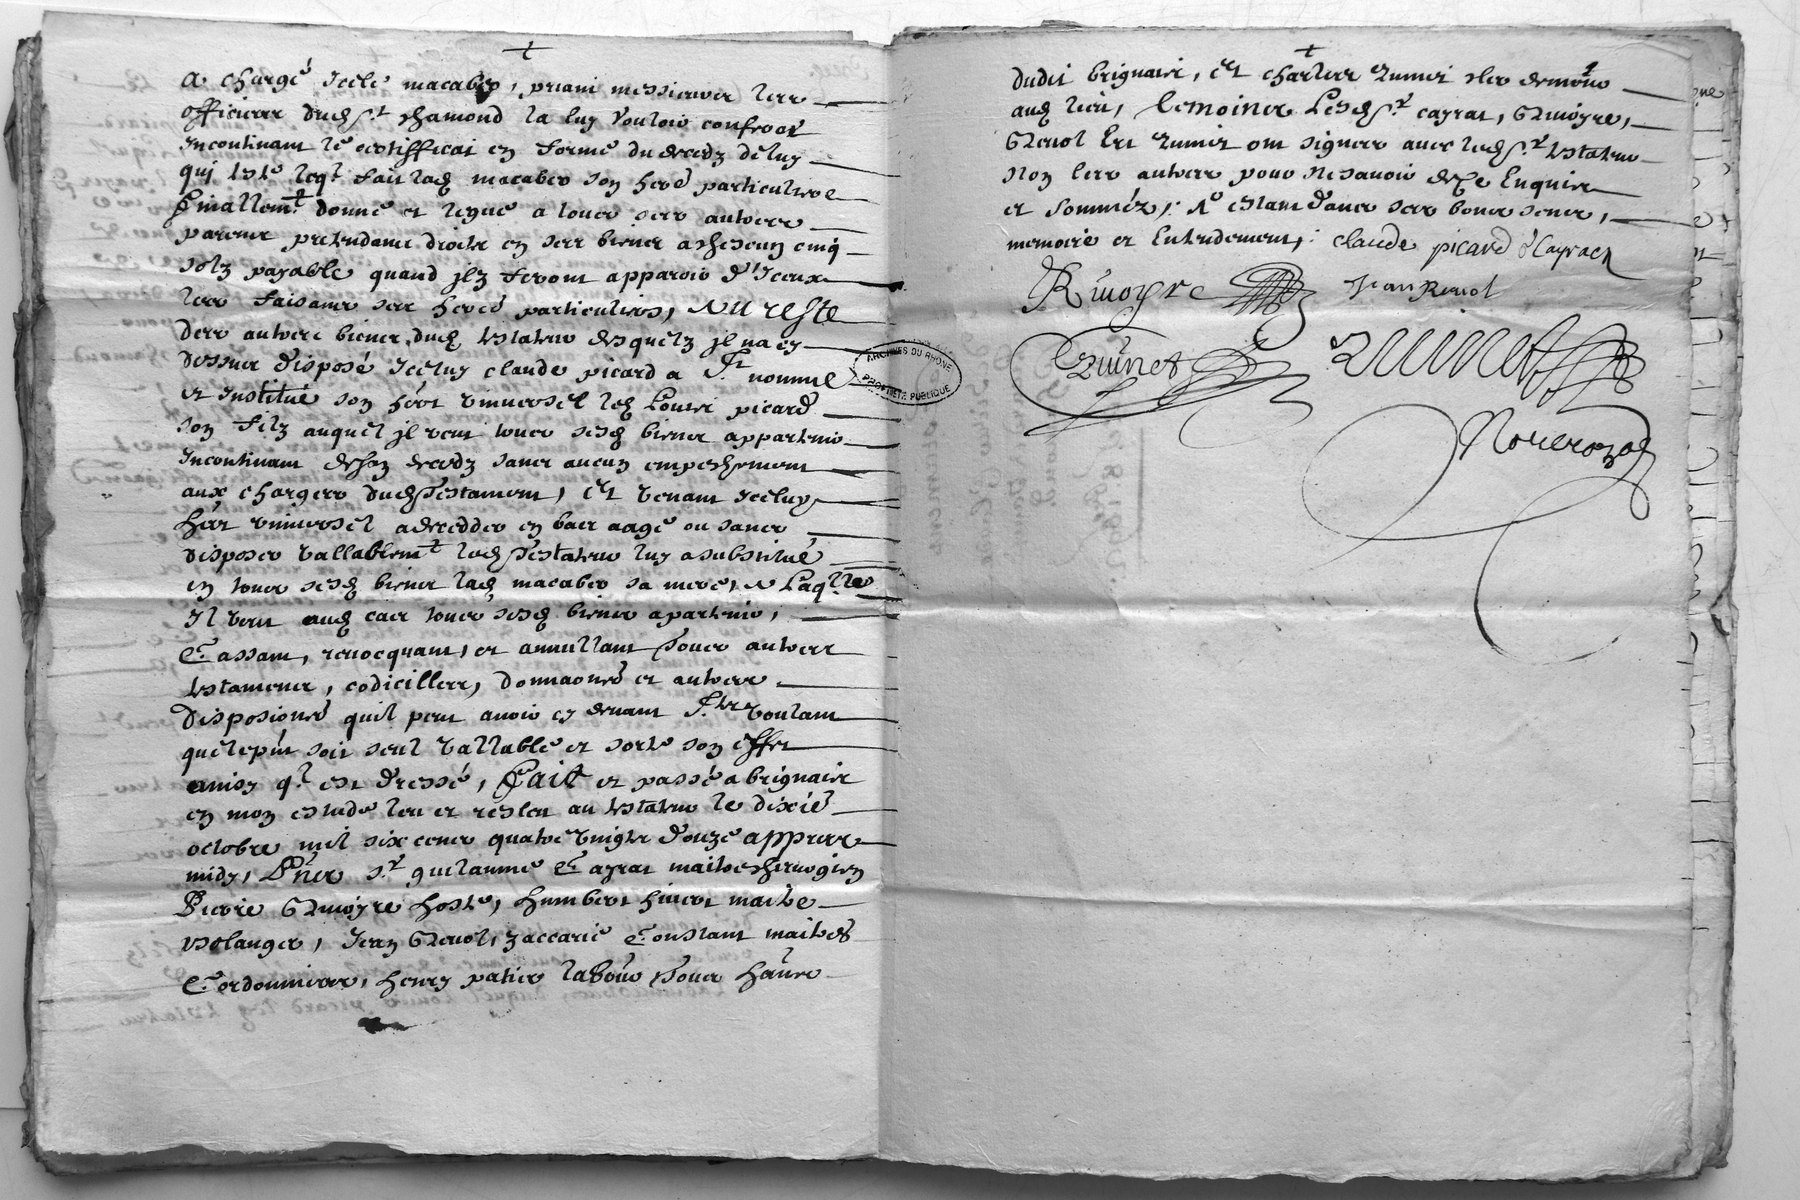 a chargé icele macabeo, priant messieures les
officiers dud St chamond la luy vouloir conferer
incontinant le certifficat en forme du deceds de luy
quj teste leql fait lad macabeo son here particuliere
Finallemt donne et legue a tous ses autres
parens pretendans droits en ses biens a chescun cinq
solz payable quand ilz feront apparoir d'iceux
les faisans ses heres particuliers, AU reste
des autres biens dud testateur desquelz il na cy
dessus disposé iceluy claude picard a ft nommé
et institué son hert universel led Louis picard
son filz auquel il veut tous sesd biens appartenir
incontinant de son deceds sans aucun empeschement
aux charges dud Testament, Et venant iceluy
hert universel a decedder en bas aage ou sans
disposer vallablemt led Testateur luy a substitué
en tous sesd biens lad macabeo sa mere, A Laqlle
Il veut aud cas tous sesd biens apartenir,
Cassant, revocquant, et annullant Tous autres
testamens, codicilles, donnaones et autres
disposiones quil peut avoir cy devant ftes voulant
que le pnt soit seul vallable et sorte son effet
ainsy ql est dressé, Fait et passé a brignais
en mon estude leu et releu au testateur le dixie
octobre mil six cens quatre vingts douze appres
midy, Pns sr guilaume Cayrat maitre chirurgien
Pierre Rivoyre hoste, humbert hivert maitre
bolanger, Jean Revol, zaccarie Constant maitres
Cordonniers, henry patier labour Tous habit
dudit brignais, Et charles Zuinet clerc demeurt
aud lieu, temoins Lesd srs cayrat, Rivoyre,
Revol Et Zuinet ont signes avec led sr testateur
Non les autres pour ne savoir de ce Enquis
et sommez, Ae estant dans ses bons sens,
memoire et Entendement, claude picard Cayrat
Rivoyre Jean Revol
Zuinet Zuinet